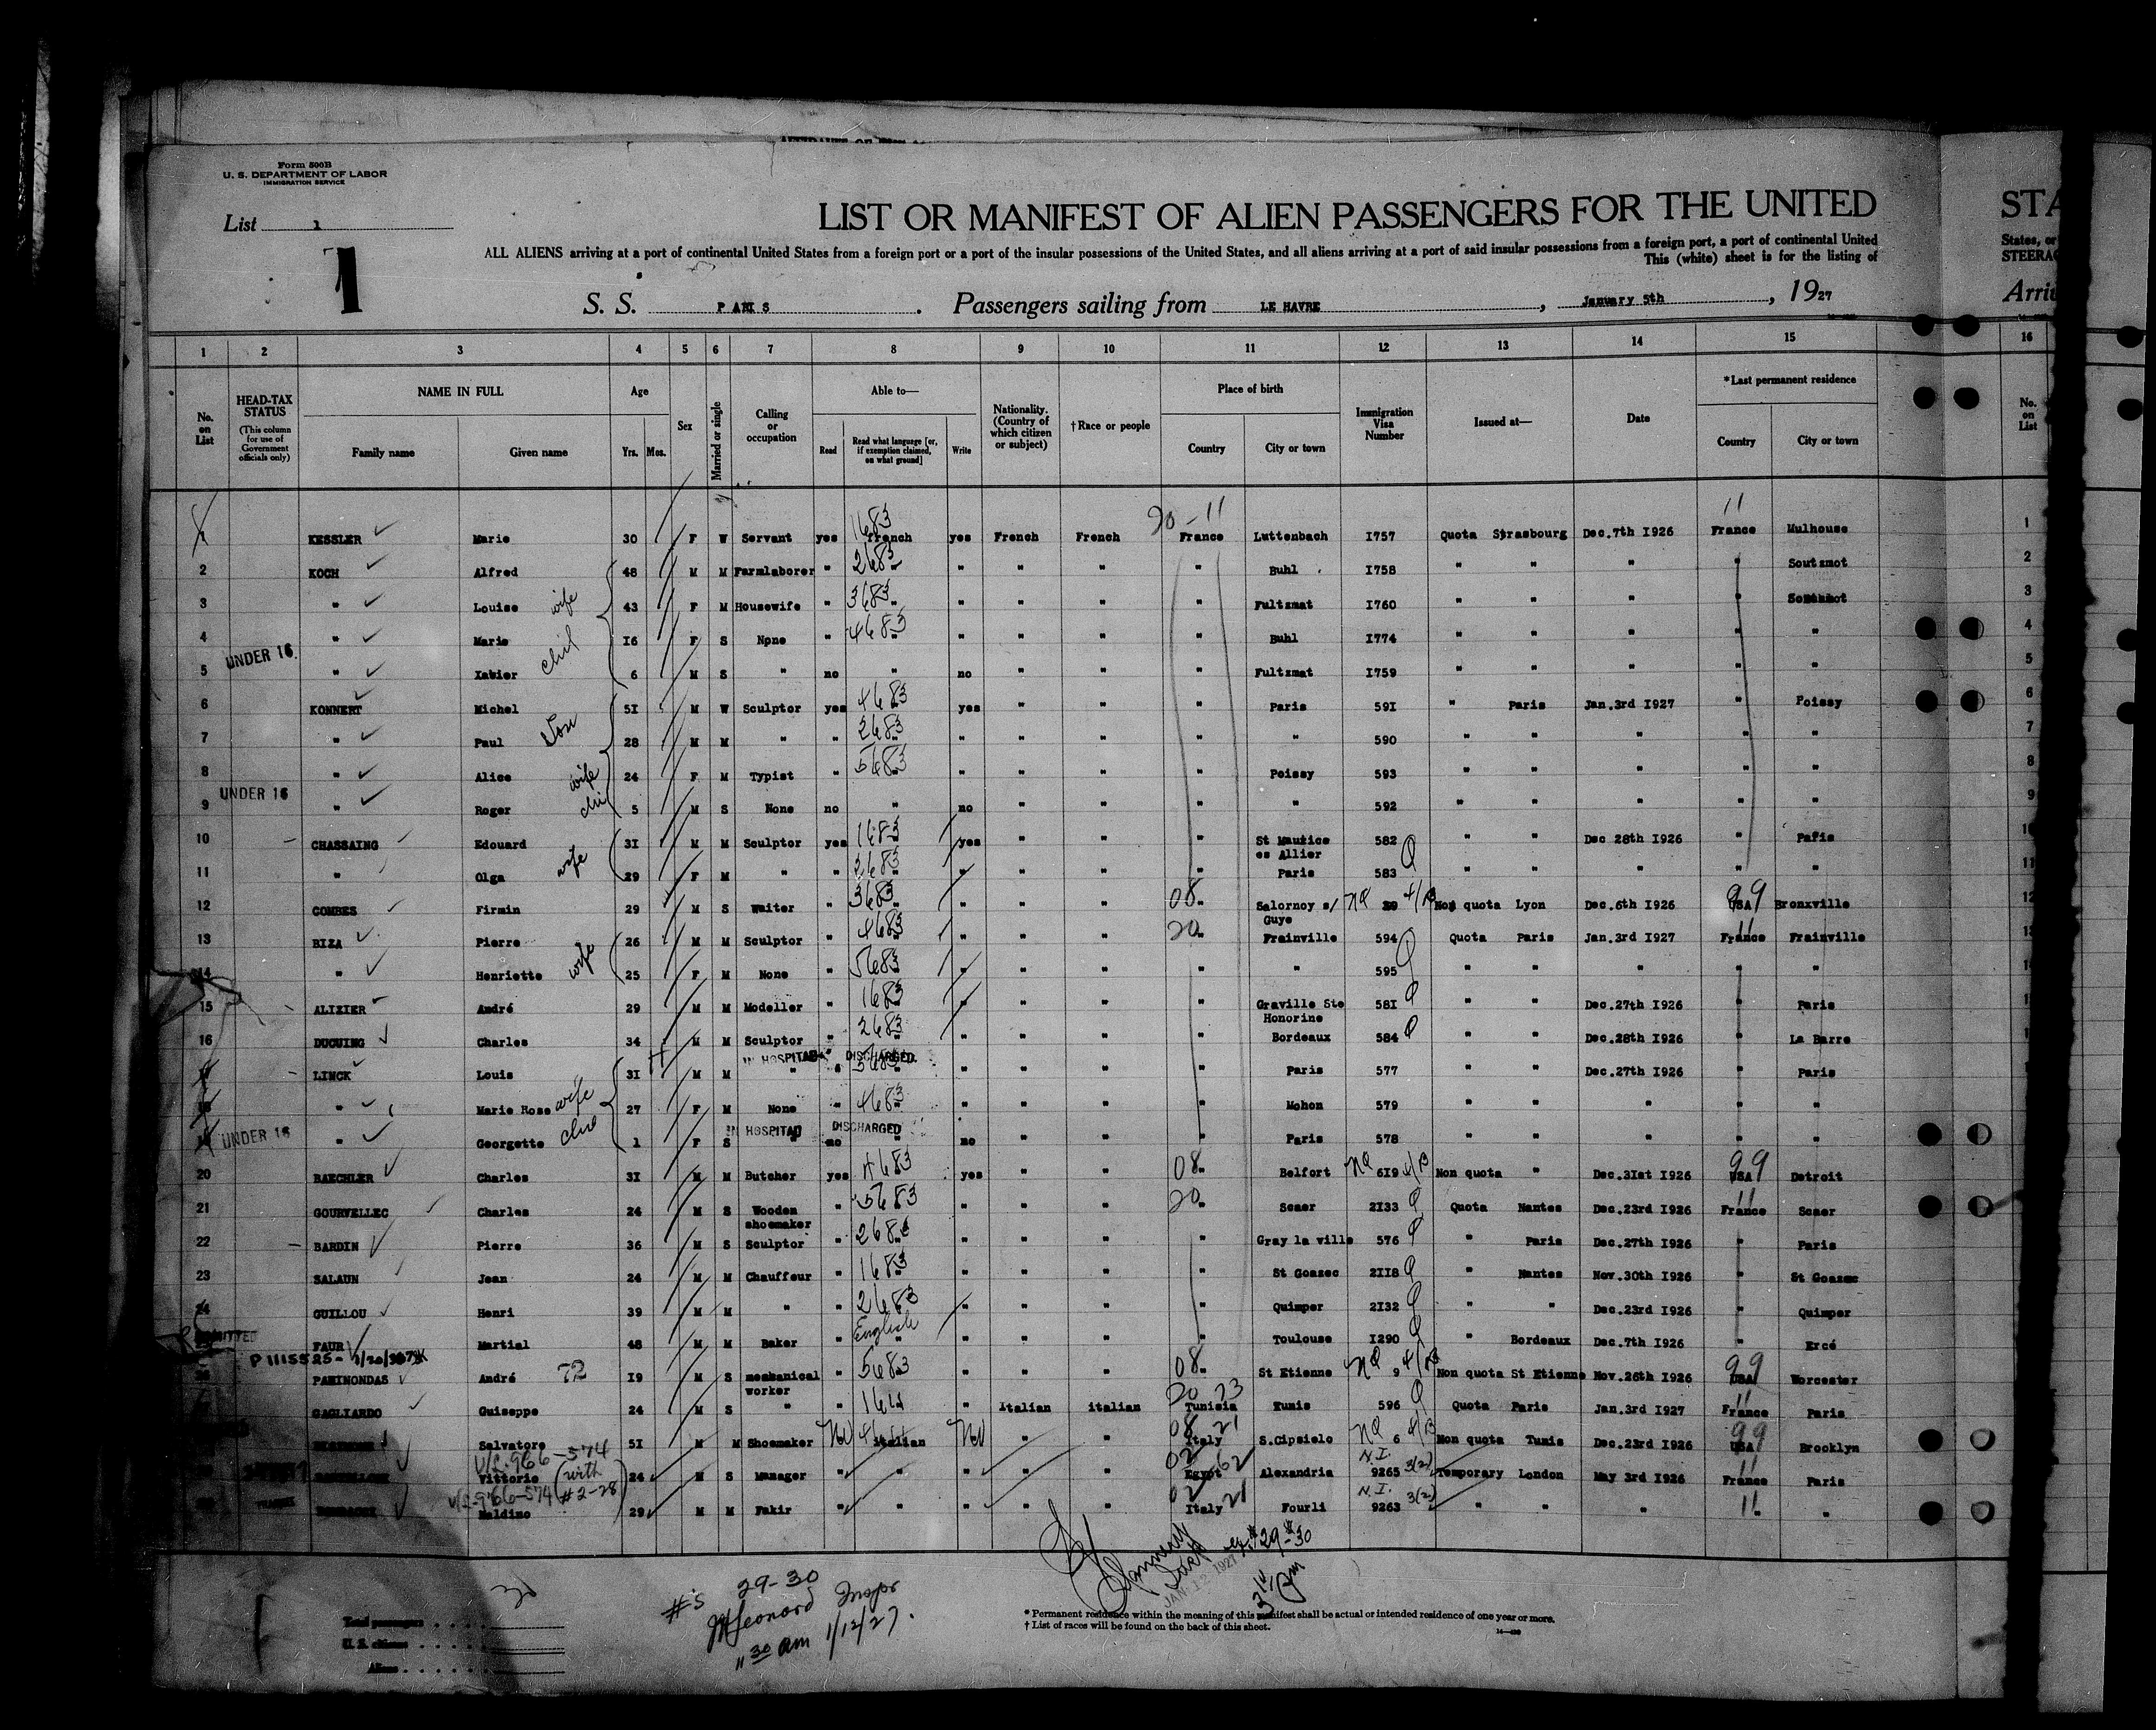 Form 500B
U. S. DEPARTMENT OF LABOR
IMMIGRATION SERVICE
List 1
1
LIST OR MANIFEST OF ALIEN PASSENGERS FOR THE UNITED
STA
ALL ALIENS arriving at a port of continental United States from a foreign port or a port of the insular possessions of the United States, and all aliens arriving at a port of said insular possessions from a foreign port, a port of continental United
States, or
This (white) sheet is for the listing of
STEERAG
S. S. PARIS . Passengers sailing from LE HAVRE , January 5th , 1927
Arri
1 2 3 4 5 6 7 8 9 10 11 12 13 14 15 16
No. on List
HEAD-TAX STATUS (This column for use of Government officials only)
NAME IN FULL Family name Given name
Age Yrs. Mos.
Sex
Married or single
Calling or occupation
Able to— Read Read what language [or, if exemption claimed, on what ground] Write
Nationality. (Country of which citizen or subject)
†Race or people
Place of birth Country City or town
Immigration Visa Number
Issued at—
Date
*Last permanent residence Country City or town
No. on List
20-11 11
KESSLER Marie 30 F W Servant yes 1683 french yes French French France Luttenbach I757 Quota Strasbourg Dec.7th I926 France Mulhouse 1
2 KOCH Alfred 48 M M Farmlaborer " 2683 " " " " Buhl I758 " " " " Soutzmot 2
3 " Louise wife 43 F M Housewife " 3683 " " " " Fultzmat I760 " " " " 3
4 " Marie chil I6 F S None " 4683 " " " " Buhl I774 " " " " " 4
UNDER 16
5 " Xabier 6 M S " no " no " " " Fultzmat I759 " " " " " 5
6 KONNERT Michel 5I M W Sculptor yes 4683 yes " " " Paris 59I " Paris Jan.3rd I927 " Poissy 6
7 " Paul Son 28 M M " " 2683 " " " " " 590 " " " " " 7
8 " Alice wife 24 F M Typist " 5683 " " " " Poissy 593 " " " " " 8
UNDER 16
9 " Roger chi 5 M S None no " no " " " " 592 " " " " " 9
10 CHASSAING Edouard 3I M M Sculptor yes 1683 yes " " " St Maurice es Allier 582 " " Dec 28th I926 " Paris
11 " Olga wife 29 F M " " 2683 " " " " Paris 583 " " " " "
12 COMBES Firmin 29 M S Waiter " 3683 " " " 08 " Salornoy s/ Guye NQ 4/B Non quota Lyon Dec.6th I926 99 USA Bronxville 12
13 BIZA Pierre 26 M M Sculptor " 4683 " " " 20 " Frainville 594 Quota Paris Jan.3rd I927 11 France Frainville
14 " Henriette wife 25 F M None " 5683 " " " " " 595 " " " " "
15 ALIZIER André 29 M M Modeller " 1683 " " " " Graville Ste Honorine 58I " " Dec.27th I926 " Paris
16 DUCUING Charles 34 M M Sculptor " 2683 " " " " Bordeaux 584 " " Dec.28th I926 " La Barre
IN HOSPITAL DISCHARGED
LINCK Louis 3I M M " " " " " " Paris 577 " " Dec.27th I926 " Paris
" Marie Rose wife 27 F M None " 4683 " " " " Mohon 579 " " " " "
UNDER 16 IN HOSPITAL DISCHARGED
" Georgette 1 F S " no " no " " " Paris 578 " " " " "
20 BAECHLER Charles 3I M M Butcher yes 4683 yes " " 08 " Belfort NQ 6I9 4/B Non quota " Dec.3Ist I926 99 USA Detroit
21 GOURVELLEC Charles 24 M S Wooden shoemaker " 5683 " " " 20 " Scaer 2I33 Quota Nantes Dec.23rd I926 11 France Scaer
22 BARDIN Pierre 36 M S Sculptor " " " " " Gray la ville 576 " Paris Dec.27th I926 " Paris
23 SALAUN Jean 24 M M Chauffeur " 1683 " " " " St Goazec 2II8 " Nantes Nov.30th I926 " St Goazec
24 GUILLOU Henri 39 M M " " 2683 " " " " Quimper 2I32 " " Dec.23rd I926 " Quimper
FAUR Martial 48 M M Baker " English " " " " Toulouse I290 " Bordeaux Dec.7th I926 " Ercé
PARINONDAS André 72 I9 M S mechanical worker " 5683 " " " 08 " St Etienne NQ 9 Non quota St Etienne Nov.26th I926 99 USA Worcester
GAGLIARDO Guiseppe 24 M S " " " Italian italian 20 23 Tunisia Tunis 596 Quota Paris Jan.3rd I927 11 France Paris
Salvatore 5I M M Shoemaker No Italian No " " 08 21 Italy S.Cipsielo NQ 6 4/B Non quota Tunis Dec.23rd I926 99 USA Brooklyn
V/L-966-574 (with #2-28)
Vittorio 24 M S Manager " " " " " 02 62 Egypt Alexandria N.I. 9265 3(2) Temporary London May 3rd I926 11 France Paris
V/L-966-574
Maldino 29 M M Fakir " " " " " 02 21 Italy Fourli N.I. 9263 3(2) " " " 11 "
JAN 12 1927
#29-#30
3 pm
30
#5 29-30
Leonard Inspr
11 30 am 1/12/27.
Total passengers
U. S. citizens
Aliens
* Permanent residence within the meaning of this manifest shall be actual or intended residence of one year or more.
† List of races will be found on the back of this sheet.